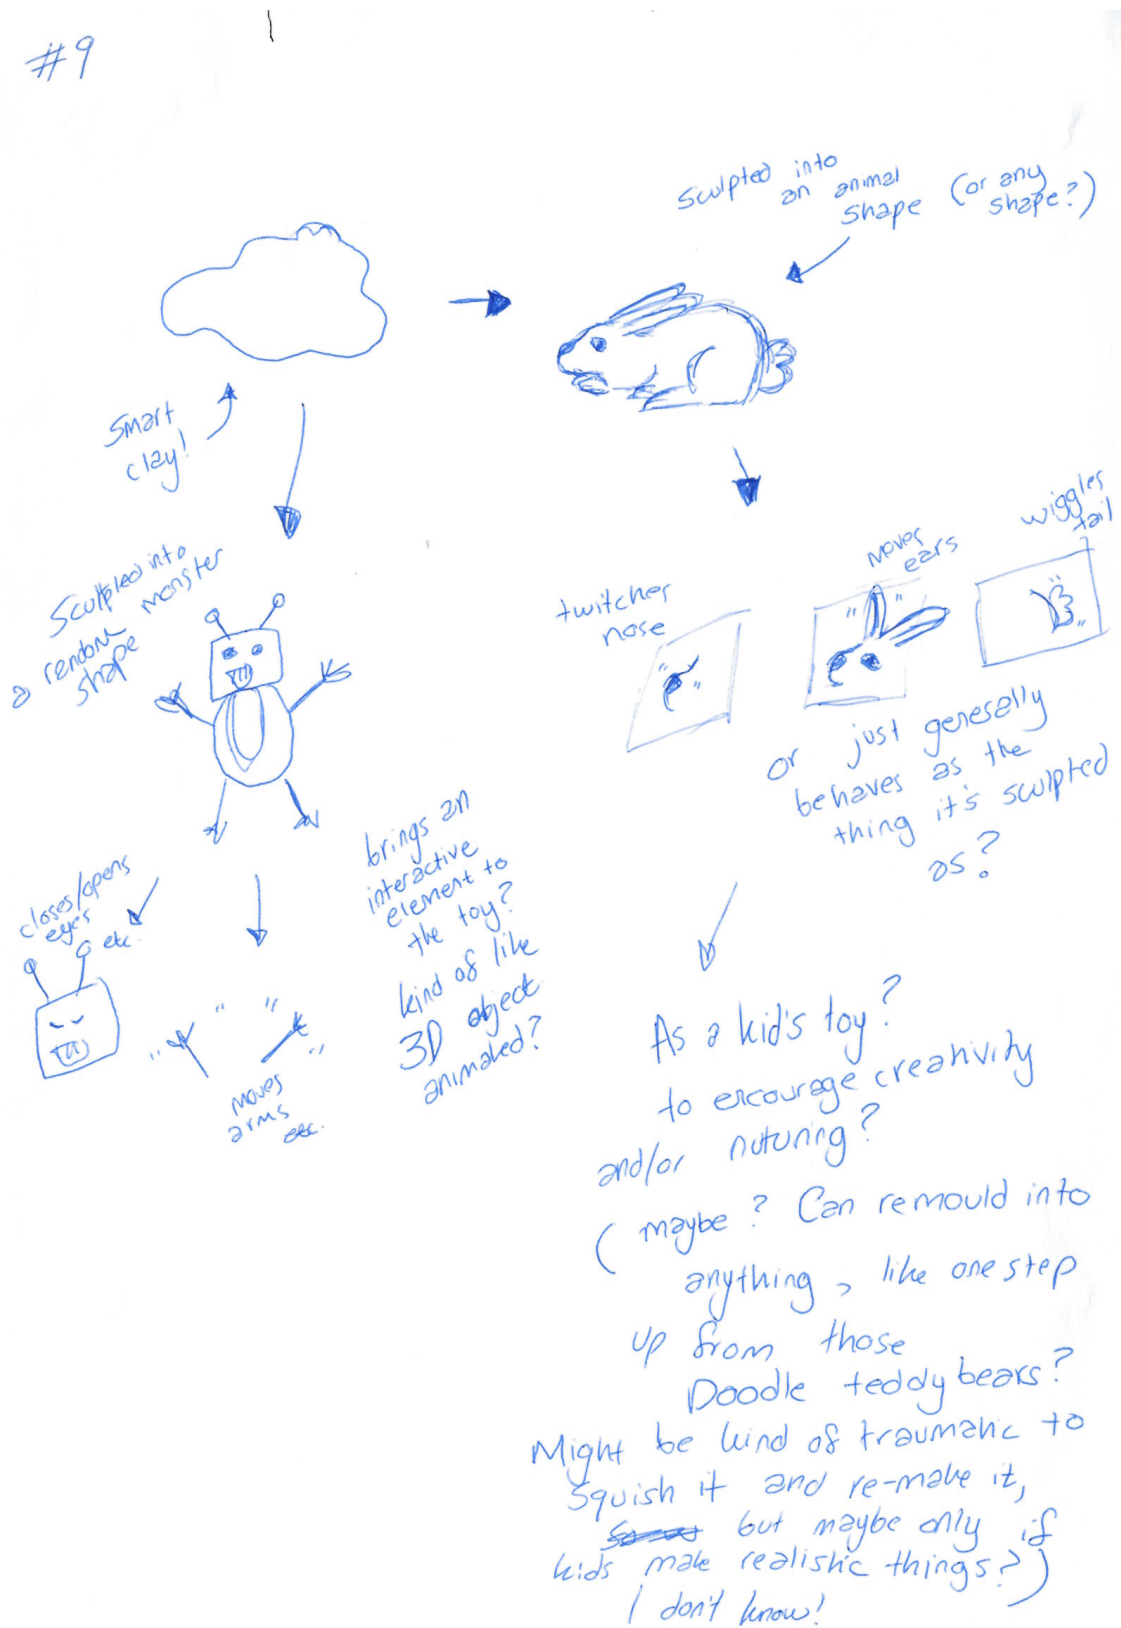 #9
Sculpted into
an animal
shape (or any
shape?)
Smart
clay!
Sculpted into
a random monster
shape
twitches
nose
moves
ears
wiggles
tail
or just generally
behaves as the
thing it's sculpted
as?
closes/opens
eyes
etc.
moves
arms
etc.
brings an
interactive
element to
the toy?
kind of like
3D object
animated?
As a kid's toy?
to encourage creativity
and/or nuturing?
(maybe? Can remould into
anything, like one step
up from those
Doodle teddy bears?
Might be kind of traumatic to
squish it and re-make it,
but maybe only if
kids make realistic things?)
I don't know!